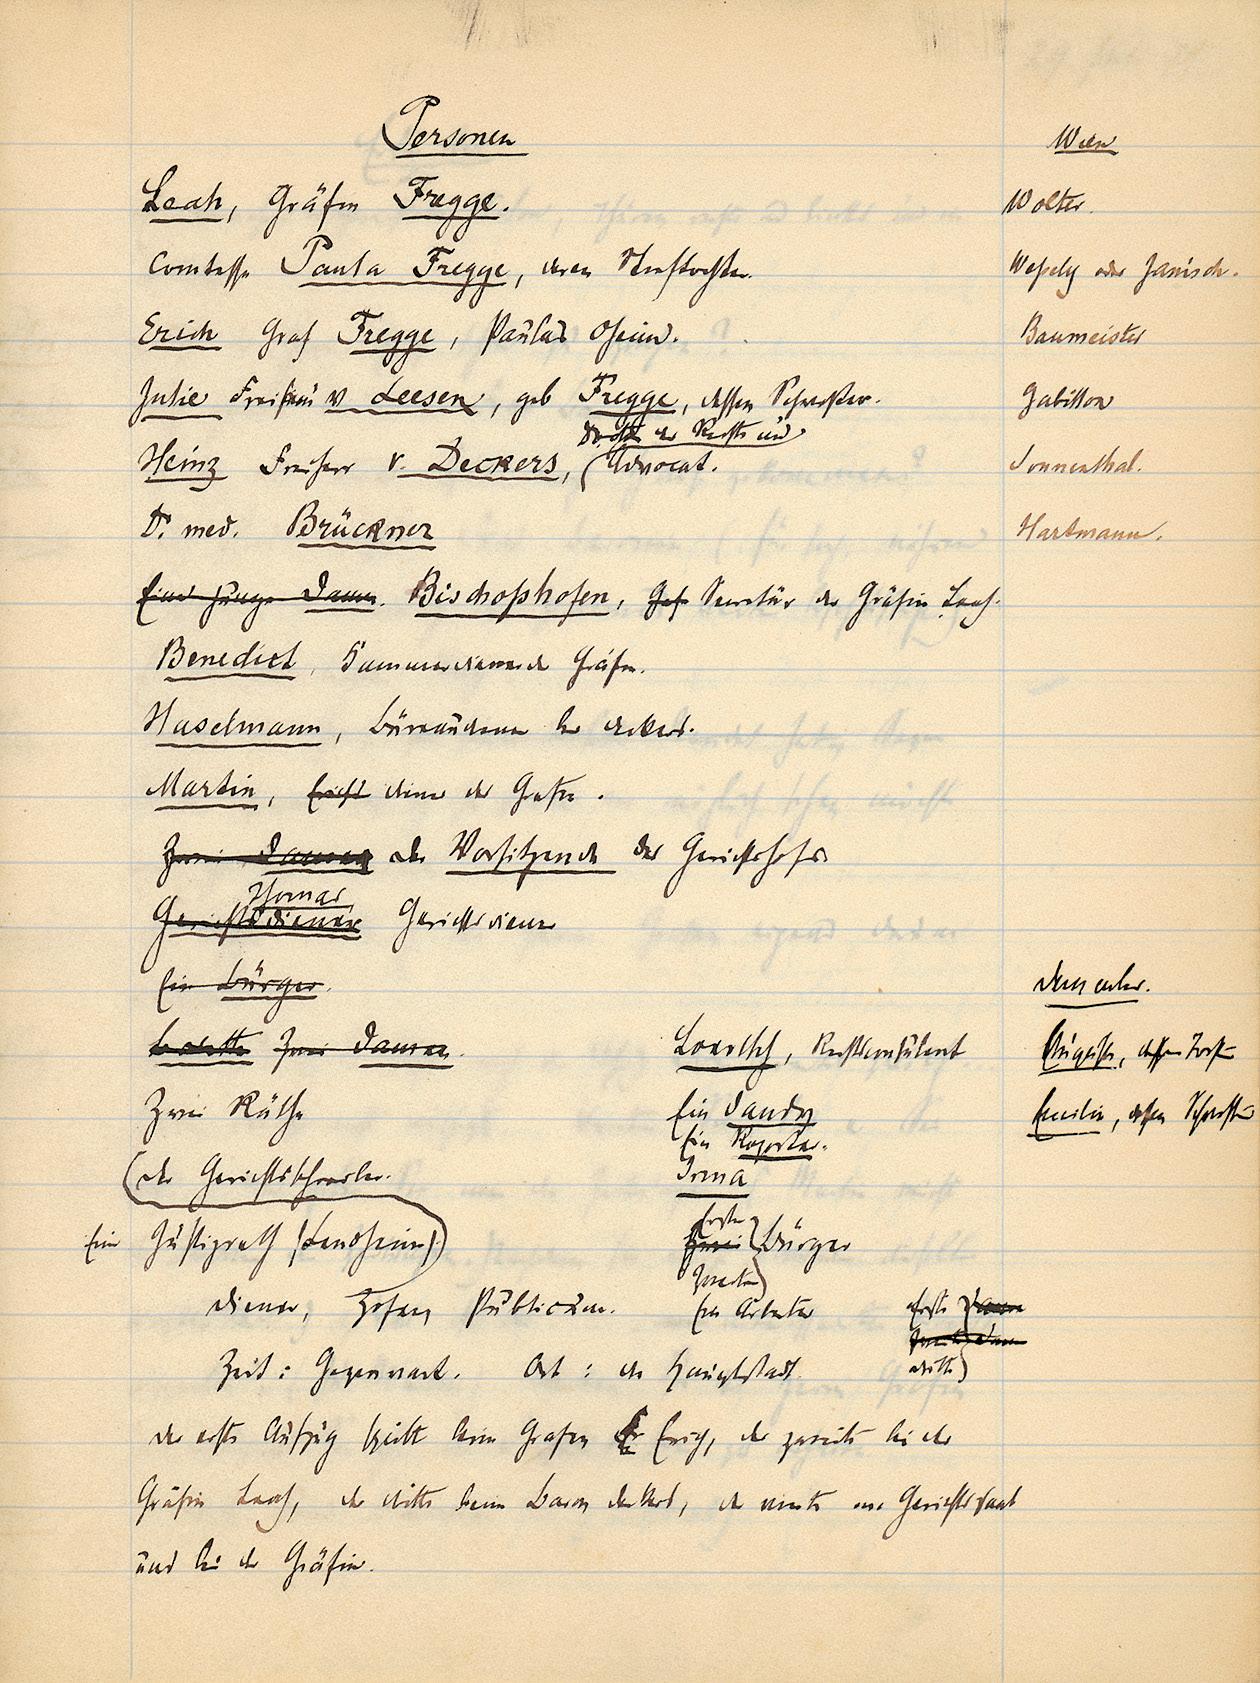 Personen
Wien
Leah, Gräfin Fregge. Wolter.
Comtesse Paula Fregge, deren Stieftochter. Wessely oder Janisch.
Erich Graf Fregge, Paulas Oheim. Baumeister
Julie Freifrau v Leesen, geb Fregge, dessen Schwester. Gabillon
der Rechte und
Heinz Freiherr v. Deckers, Advocat. Sonnenthal.
Dr. med. Brückner Hartmann.
Eine junge Dame. Bischofshofen, Secretär der Gräfin Leah.
Benedict, Kammerdiener der Gräfin.
Haselmann, Büreaudiener bei Deckers.
Martin, Diener des Grafen.
Zwei Damen Der Vorsitzende des Gerichtshofes
Thomas,
Gerichtsdiener Gerichtsdiener
Ein Bürger.
Zwei Damen. Rechtsconsulent dessen
Zwei Räthe Ein Dandy Cecilie, dessen Schwester
Ein Reporter.
Der Gerichtsschreiber. Irma
Erster
Ein Justizrath Zwei Bürger
Zweiter
Diener, Zofen, Publicum. Ein Arbeiter Erste Dame
Zweite Dame
Zeit: Gegenwart. Ort: die Hauptstadt. dritte
Der erste Aufzug spielt beim Grafen Erich, der zweite bei der
Gräfin Leah, der dritte beim Baron Deckers, der vierte im Gerichtssaal
und bei der Gräfin.